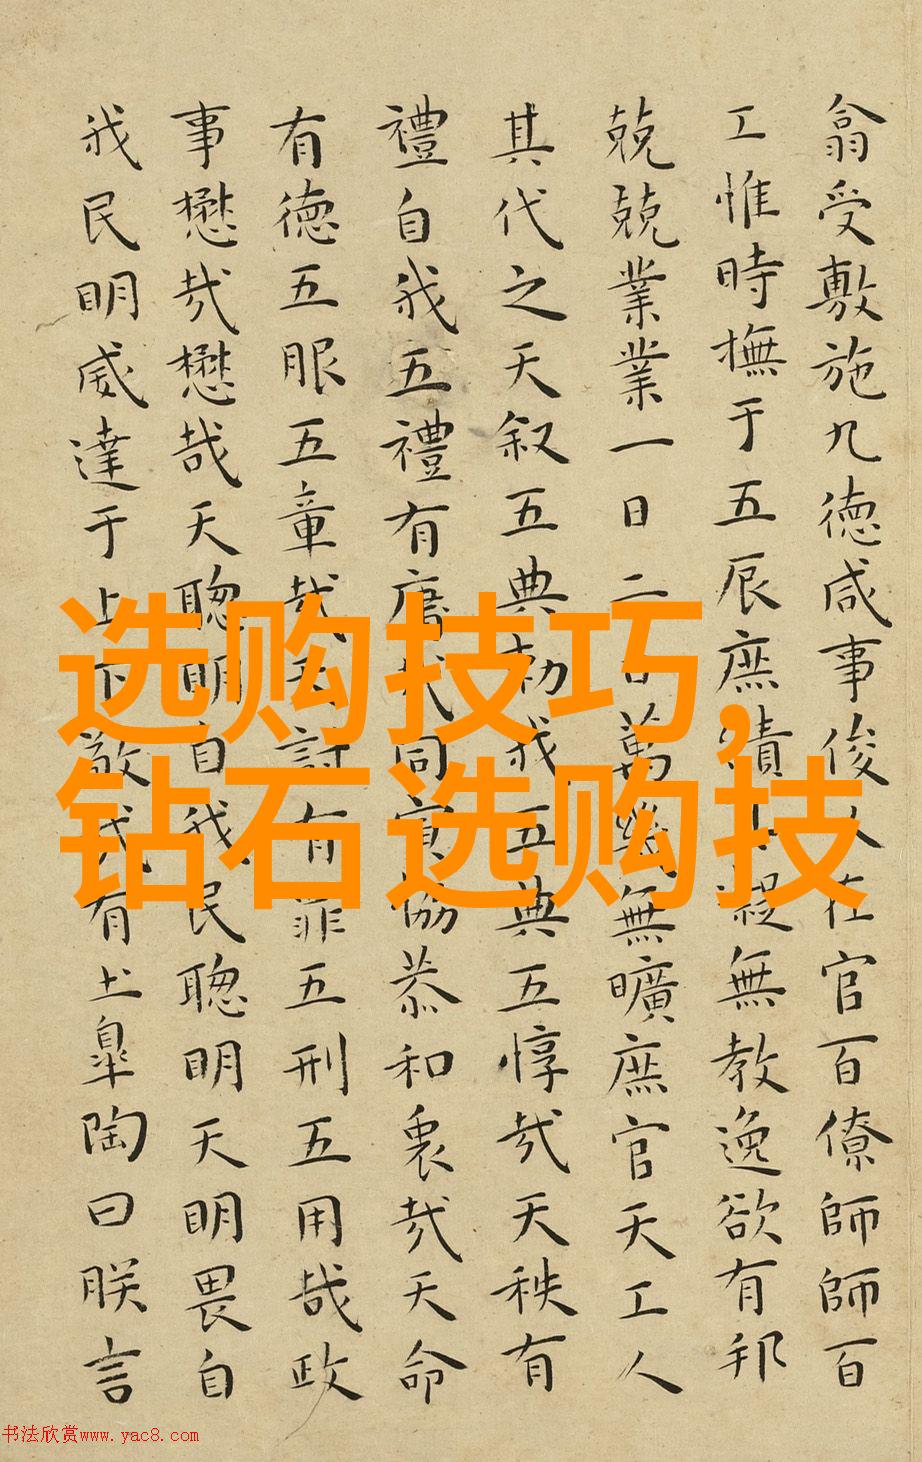 翕受敷施九德咸事俊乂在官百僚師師百
工惟時撫于五辰庶績其凝無教逸欲有邦
兢兢業業一日二日萬幾無曠庶官天工人
其代之天叙五典勑我五典五惇哉天秩有
禮自我五禮有庸哉同寅協恭和衷哉天命
有德五服五章哉天討有罪五刑五用哉政
事懋哉懋哉天聰明自我民聰明天明畏自
我民明威達于上下敬哉有土皐陶曰朕言
选购技巧,
钻石选购技
书法欣赏www.yac8.com